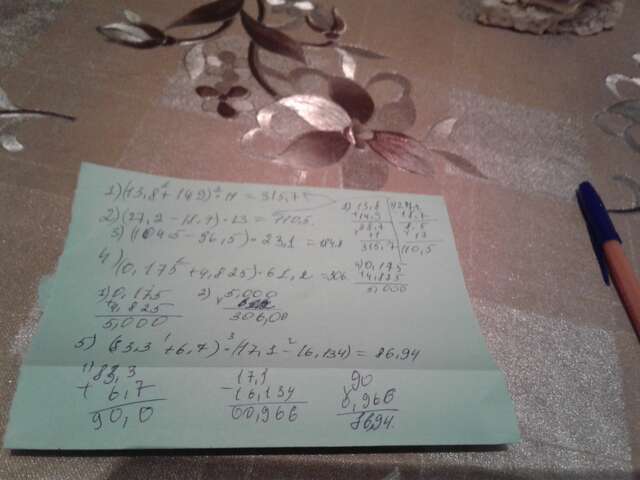 1) (13,8 + 14,9) · 11 = 315,7
2) (27,2 - 18,7) · 13 = 110,5
3) (104,5 - 96,5) · 23,1 = 184,8
4) (0,175 + 4,825) · 61,2 = 306
1) 0,175
+ 4,825
5,000
2) 5,000
306,00
13,8
+ 14,9
28,7
315,7
18,7
8,5
110,5
0,175
+ 4,825
5,000
5) (83,3 + 6,7) · (17,1 - 16,134) = 86,94
1) 83,3
+ 6,7
90,0
17,1
- 16,134
00,966
90
0,966
86,94